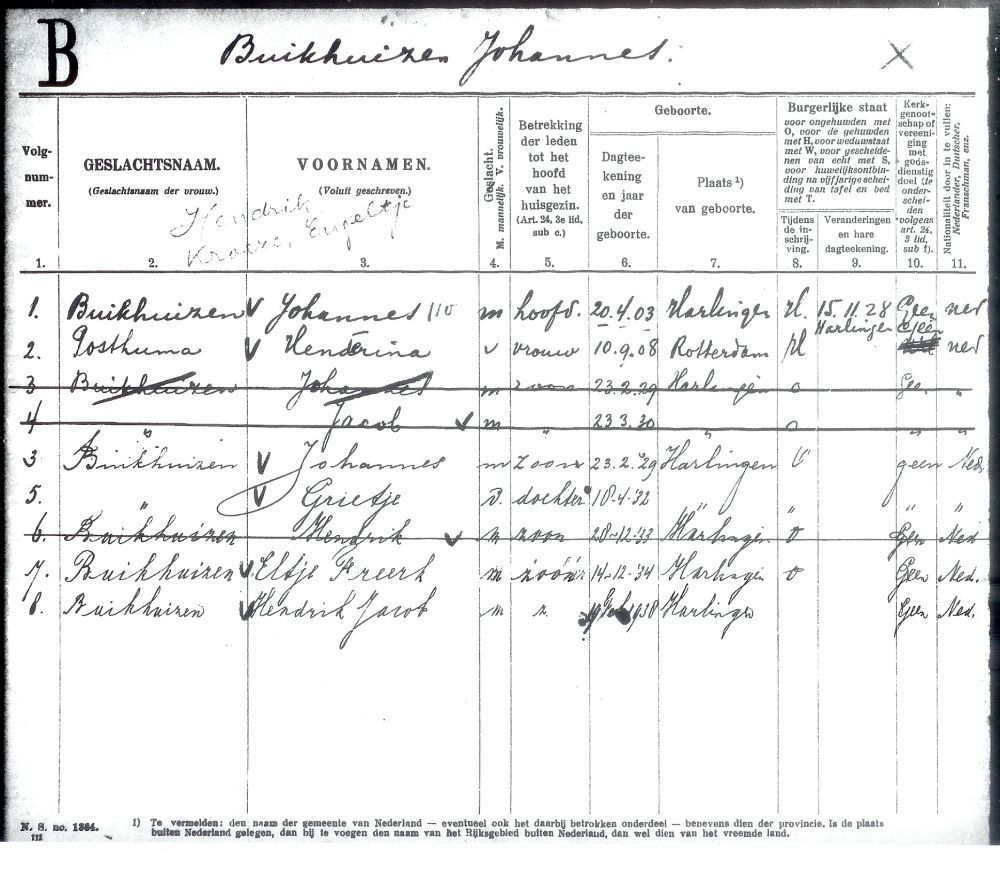 B
Buikhuizen Johannes.
Volg-
num-
mer.
GESLACHTSNAAM.
(Geslachtsnaam der vrouw.)
VOORNAMEN.
(Voluit geschreven.)
Hendrik
Engeltje
Geslacht.
M. mannelijk. V. vrouwelijk.
Betrekking
der leden
tot het
hoofd
van het
huisgezin.
(Art. 24, 3e lid,
sub c.)
Geboorte.
Dagtee-
kening
en jaar
der
geboorte.
Plaats ¹)
van geboorte.
Burgerlijke staat
voor ongehuwden met
O, voor de gehuwden
met H, voor weduwstaat
met W, voor gescheide-
nen van echt met S,
voor huwelijksontbin-
ding na vijfjarige schei-
ding van tafel en bed
met T.
Tijdens
de in-
schrij-
ving.
Veranderingen
en hare
dagteekening.
Kerk-
genoot-
schap of
vereeni-
ging
met
gods-
dienstig
doel (te
onder-
schei-
den
volgens
art. 24,
3 lid,
sub f).
Nationaliteit door in te vullen:
Nederlander, Duitscher,
Franschman, enz.
1. 2. 3. 4. 5. 6. 7. 8. 9. 10. 11.
1. Buikhuizen Johannes m hoofd. 20.4.03 Harlingen H. 15.11.28 Geen ned
Harlingen
2. Posthuma Henderina v vrouw 10.9.08 Rotterdam H Geen ned
3 Buikhuizen Johannes m zoon 23.2.29 Harlingen o Geen "
4 " Jacob m " 23.3.30 " o " "
3. Buikhuizen Johannes m zoon 23.2.'29 Harlingen O geen Ned.
5. " Grietje v. dochter 18.4.'32 " " " "
6. Buikhuizen Hendrik m zoon 28-12-'33 Harlingen o Geen Ned
7. Buikhuizen Eltje Freerk m zoon 14-12-'34 Harlingen o Geen Ned.
8. Buikhuizen Hendrik Jacob m z. 1938 Harlingen Geen Ned.
N. S. no. 1364.
III
1) Te vermelden: den naam der gemeente van Nederland — eventueel ook het daarbij betrokken onderdeel — benevens dien der provincie. Is de plaats
buiten Nederland gelegen, dan bij te voegen den naam van het Rijksgebied buiten Nederland, dan wel dien van het vreemde land.